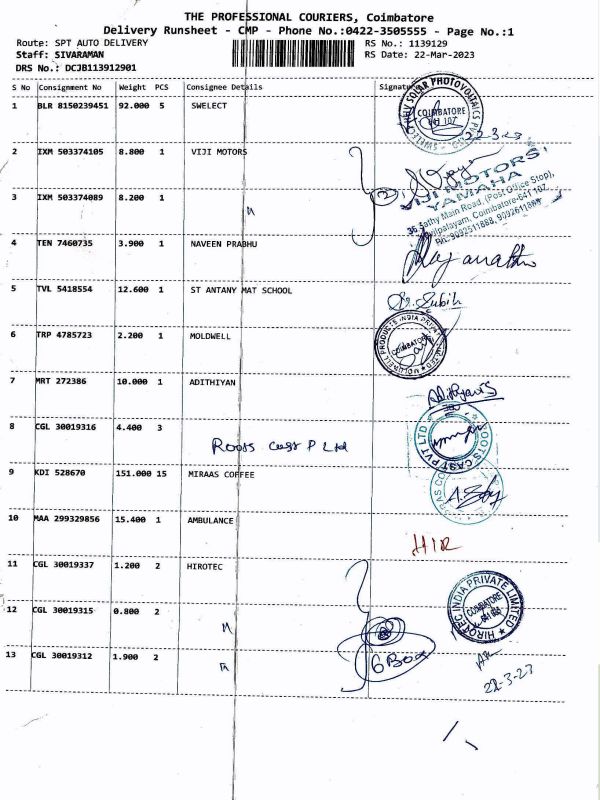 THE PROFESSIONAL COURIERS, Coimbatore
Delivery Runsheet - CMP - Phone No.:0422-3505555 - Page No.:1
Route: SPT AUTO DELIVERY RS No.: 1139129
Staff: SIVARAMAN RS Date: 22-Mar-2023
DRS No.: DCJB113912901
S No Consignment No Weight PCS Consignee Details Signature
1 BLR 8150239451 92.000 5 SWELECT
SOLAR PHOTOVOLTAICS
COIMBATORE
641 107
22-3-23
2 IXM 503374105 8.800 1 VIJI MOTORS
2
VIJI MOTORS
YAMAHA
Sathy Main Road, (Post Office Stop),
Coimbatore-641 107
3 IXM 503374089 8.200 1 "
4 TEN 7460735 3.900 1 NAVEEN PRABHU
5 TVL 5418554 12.600 1 ST ANTANY MAT SCHOOL
6 TRP 4785723 2.200 1 MOLDWELL
MOLDWELL PRODUCTS INDIA PRIVATE LIMITED
COIMBATORE
7 MRT 272386 10.000 1 ADITHIYAN
8 CGL 30019316 4.400 3
Roots Cast P Ltd
ROOTS CAST PVT LTD
9 KDI 528670 151.000 15 MIRAAS COFFEE
10 MAA 299329856 15.400 1 AMBULANCE
HIR
11 CGL 30019337 1.200 2 HIROTEC
HIROTEC INDIA PRIVATE LIMITED
COIMBATORE
12 CGL 30019315 0.800 2 "
6 Box
13 CGL 30019312 1.900 2 "
22-3-23